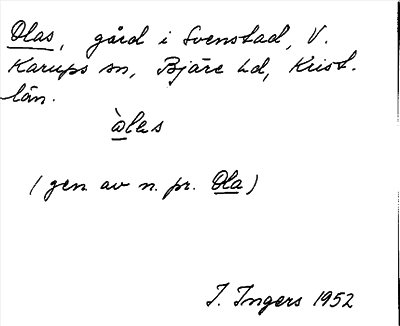 Olas, gård i Svenstad, V.
Karups sn, Bjäre hd, Krist.
län.
òlas
(gen. av n. pr. Ola)
I. Ingers 1952